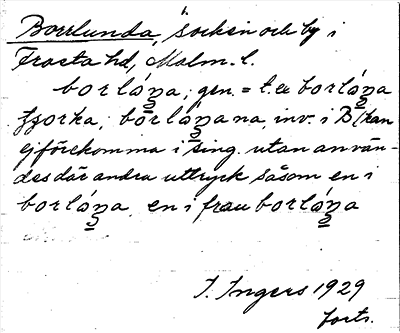 Borrlunda, socken och by i
Frosta hd, Malm. l.
borlóṉa; gen. = t. ex borlóṉa
borlóṉana, inv. i B (kan
ej förekomma i sing. utan använ-
des där andra uttryck såsom en i
borlóṉa, en i frau borlóṉa
I. Ingers 1929
forts.